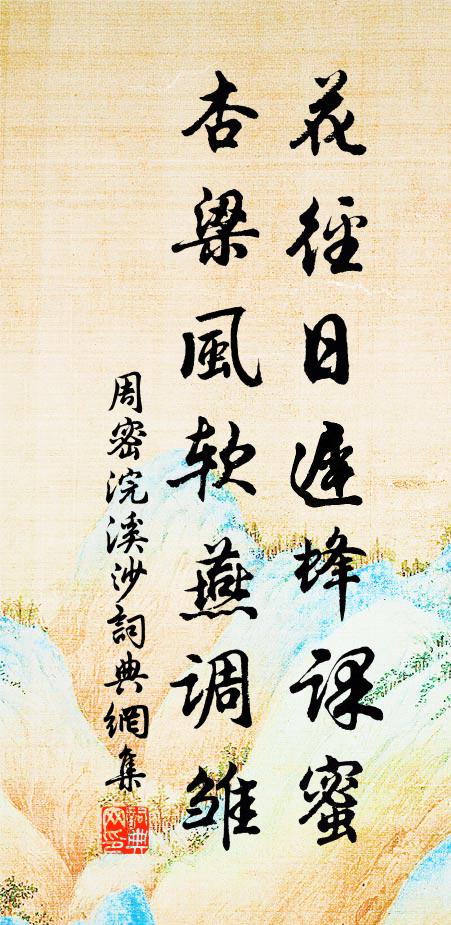 花徑日遲蜂課蜜
杏梁風軟燕調雛
周密浣溪沙詞典網集
詞典網印